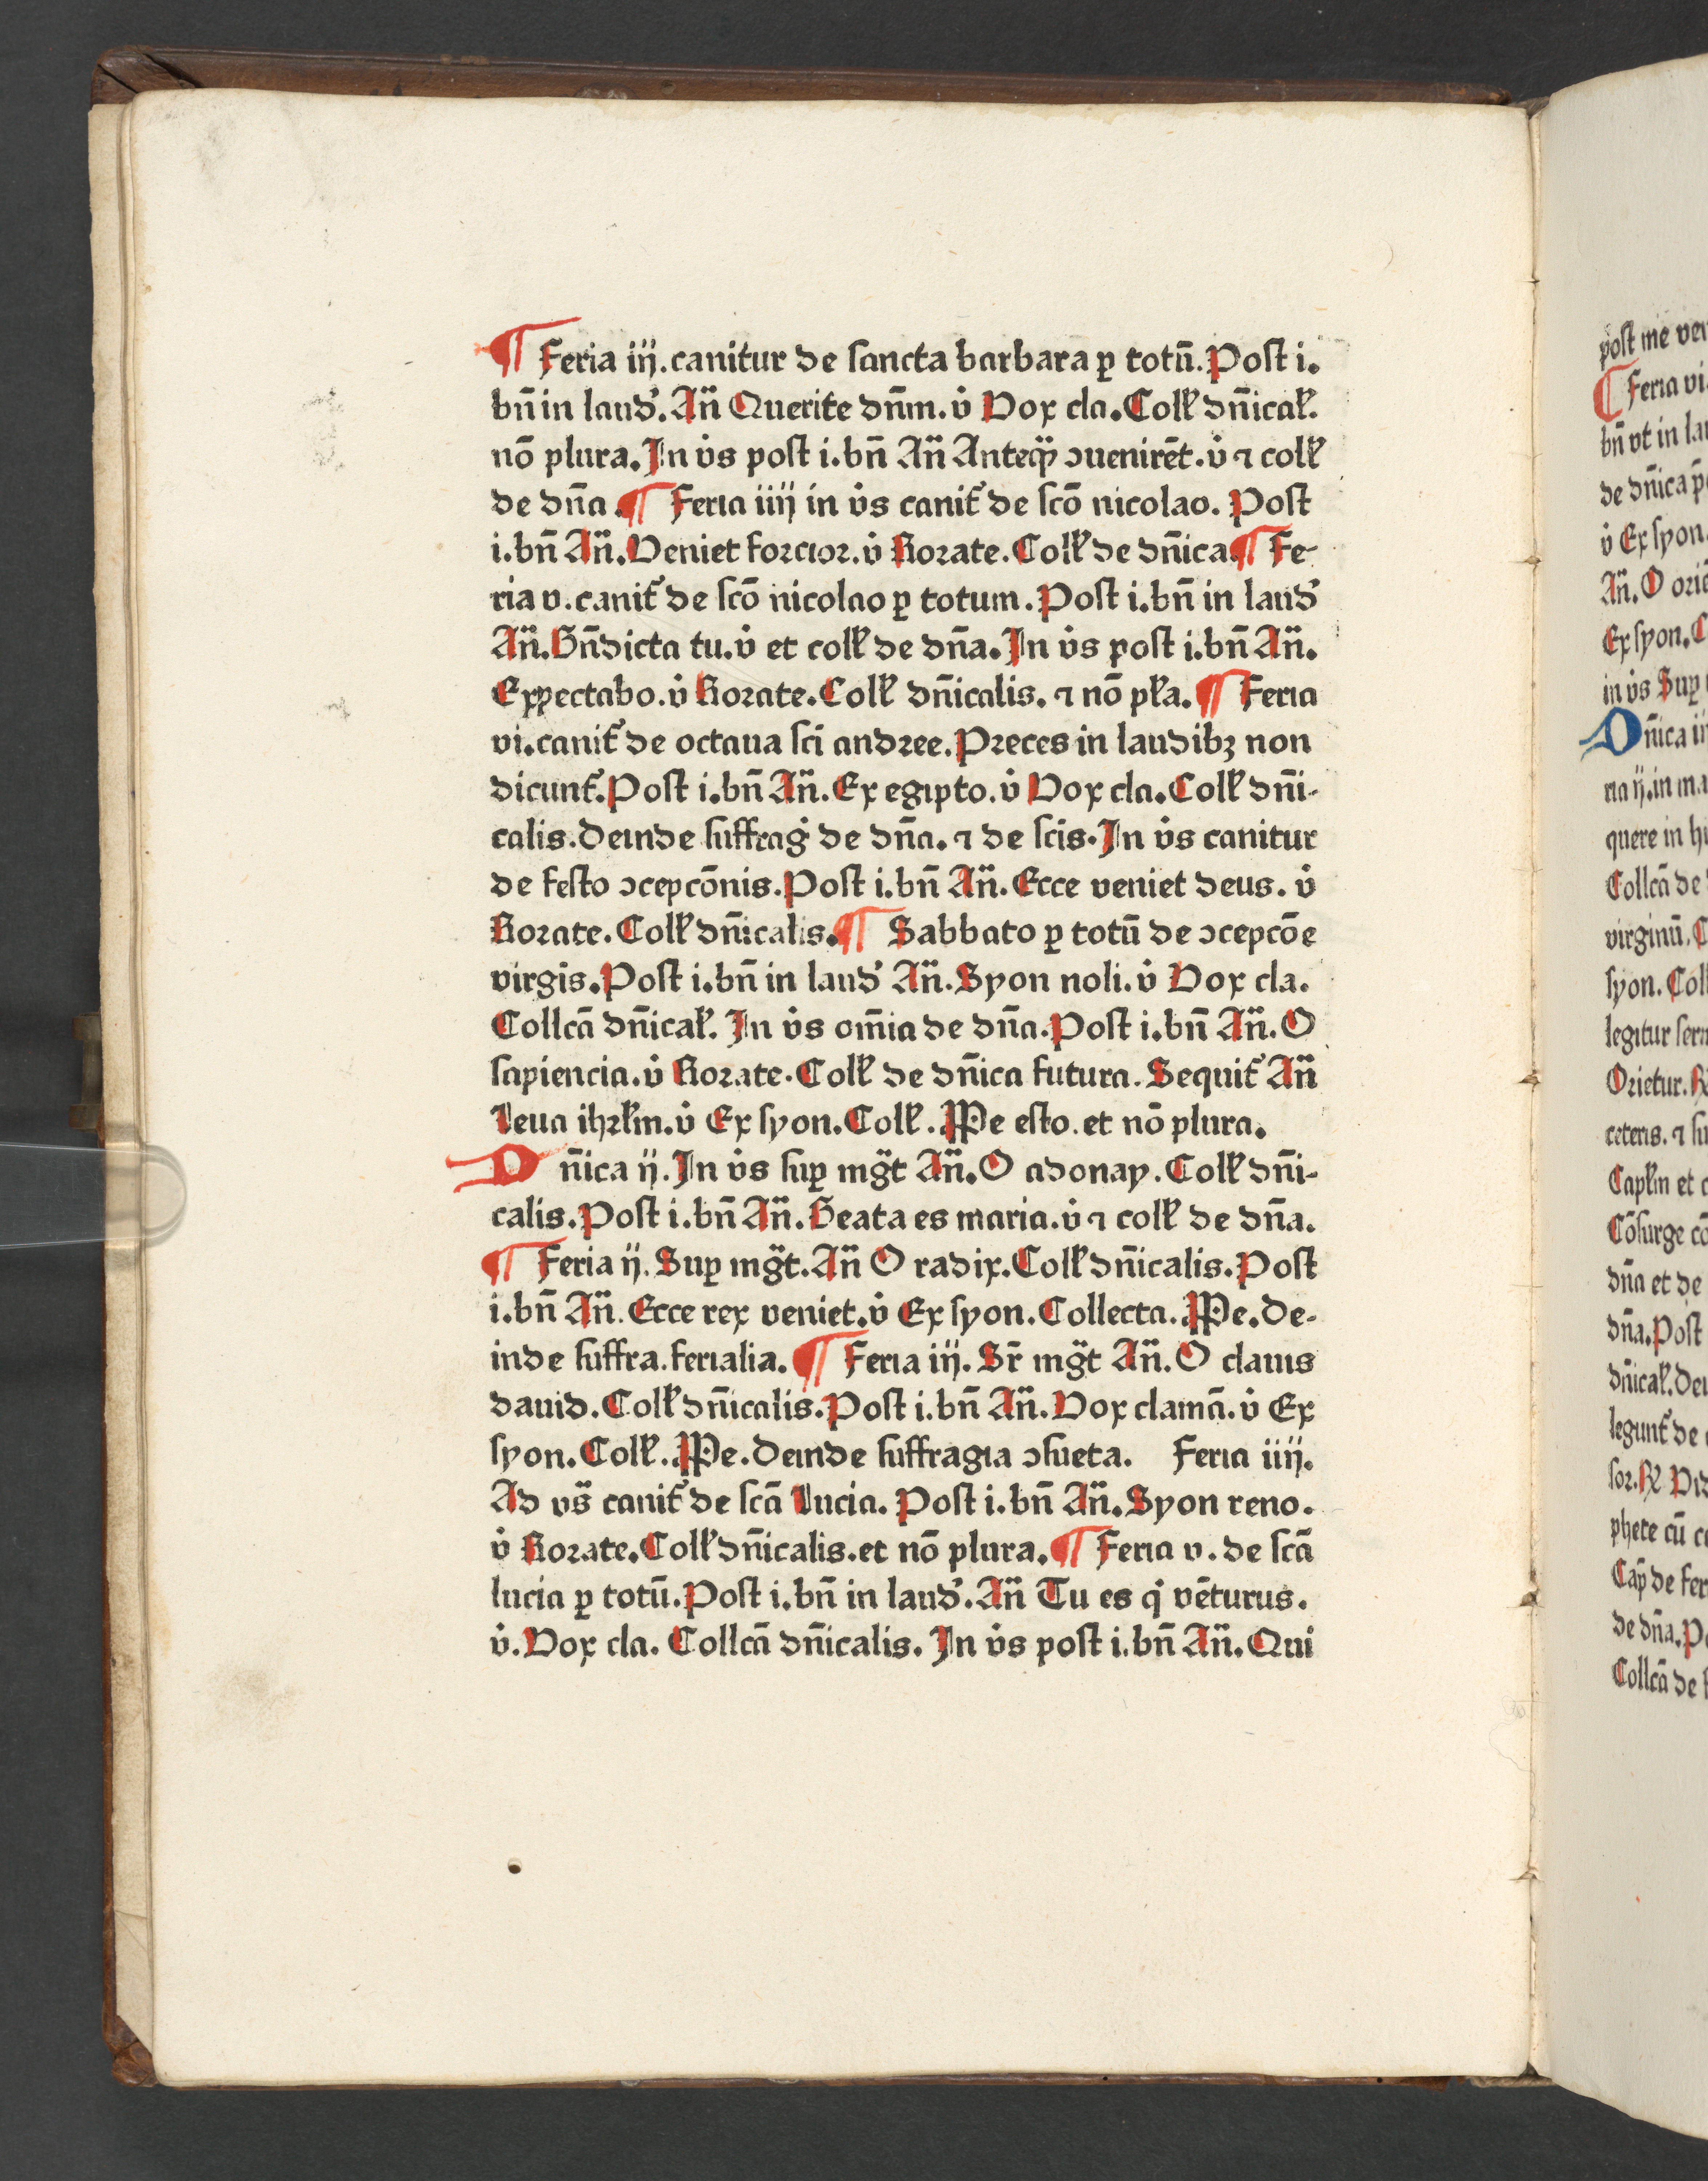 ¶ Feria iij. canitur de sancta barbara ꝑ totū. Post i.
bn̄ in laud᷒. An̄ Querite dn̄m. v̇ Vox cla. Coll᷒ dn̄ical᷒.
nō plura. In v̇s post i. bn̄ An̄ Anteqꝫ ↄuenirēt. v̇ ⁊ coll᷒
de dn̄a. ¶ Feria iiij in v̇s canit᷒ de scō nicolao. Post
i. bn̄ An̄. Veniet forcior. v̇ Rorate. Coll᷒ de dn̄ica. ¶ Fe-
ria v. canit᷒ de scō nicolao ꝑ totum. Post i. bn̄ in laud᷒
An̄. Bn̄dicta tu. v̇ et coll᷒ de dn̄a. In v̇s post i. bn̄ An̄.
Expectabo. v̇ Rorate. Coll᷒ dn̄icalis. ⁊ nō pl᷒a. ¶ Feria
vi. canit᷒ de octaua sci andree. Preces in laudibꝫ non
dicunt᷒. Post i. bn̄ An̄. Ex egipto. v̇ Vox cla. Coll᷒ dn̄i-
calis. Deinde suffrag᷒ de dn̄a. ⁊ de scis. In v̇s canitur
de festo ↄcepcōnis. Post i. bn̄ An̄. Ecce veniet deus. v̇
Rorate. Coll᷒ dn̄icalis. ¶ Sabbato ꝑ totū de ↄcepcōe
virgis. Post i. bn̄ in laud᷒ An̄. Syon noli. v̇ Vox cla.
Collcā dn̄ical᷒. In v̇s om̄ia de dn̄a. Post i. bn̄ An̄. O
sapiencia. v̇ Rorate. Coll᷒ de dn̄ica futura. Sequit᷒ An̄
Leua ihrl᷒m. v̇ Ex syon. Coll᷒. PPe esto. et nō plura.
Dn̄ica ij. In v̇s suꝑ mg̈t An̄. O adonay. Coll᷒ dn̄i-
calis. Post i. bn̄ An̄. Beata es maria. v̇ ⁊ coll᷒ de dn̄a.
¶ Feria ij. Suꝑ mg̈t. An̄ O radix. Coll᷒ dn̄icalis. Post
i. bn̄ An̄. Ecce rex veniet. v̇ Ex syon. Collecta. PPe. De-
inde suffra. ferialia. ¶ Feria iij. Sr̄ mg̈t An̄. O clauis
dauid. Coll᷒ dn̄icalis. Post i. bn̄ An̄. Vox clamā. v̇ Ex
syon. Coll᷒. PPe. Deinde suffragia ↄsueta. Feria iiij.
Ad vs̄ canit᷒ de scā Lucia. Post i. bn̄ An̄. Syon reno.
v̇ Rorate. Coll᷒ dn̄icalis. et nō plura. ¶ Feria v. de scā
lucia ꝑ totū. Post i. bn̄ in laud᷒. An̄ Tu es q̇ vēturus.
v̇. Vox cla. Collcā dn̄icalis. In v̇s post i. bn̄ An̄. Qui
post me ven
¶ Feria vi
bn̄ vt in la
de dn̄ica
v̇ Ex syon.
An̄. O orie
Ex syon. C
in v̇s Suꝑ
Dn̄ica ii
ria ij. in ma
quere in h
Collcā de
virginū. C
syon. Coll
legitur ser
Orietur.
ceteris. ⁊ su
Capl᷒m et c
Cōsurge cō
dn̄a et de
dn̄a. Post
dn̄ical᷒. Dei
legunt᷒ de
sor. Vid
phete cū c
Cap̄ de fer
de dn̄a. Po
Collcā de